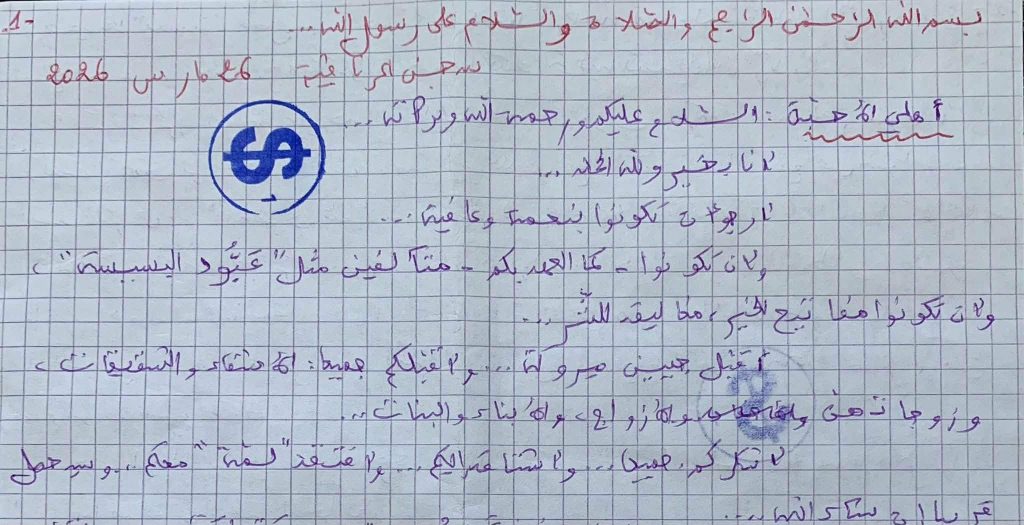 -1-
بسم الله الرحمن الرحيم والصلاة والسلام على رسول الله...
سجن المرناقية 26 مارس 2026
أهلي الأحبّة: السلام عليكم ورحمة الله وبركاته...
أنا بخير ولله الحمد...
أرجو أن تكونوا بنعمة وعافية...
وأن تكونوا - كما العهد بكم - متآلفين مثل "عنقود البسيسة"،
وأن تكونوا مفاتيح للخير، مغاليق للشّر...
أقبّل جبين مبروكة... وأقبّلكم جميعا: الأشقاء والشقيقات،
وزوجاتهن والأزواج، والأبناء والبنات...
أذكركم جميعا... وأشتاق إليكم... وأفتقد "لمّة" معكم... وسيحصل
قريبا إن شاء الله...